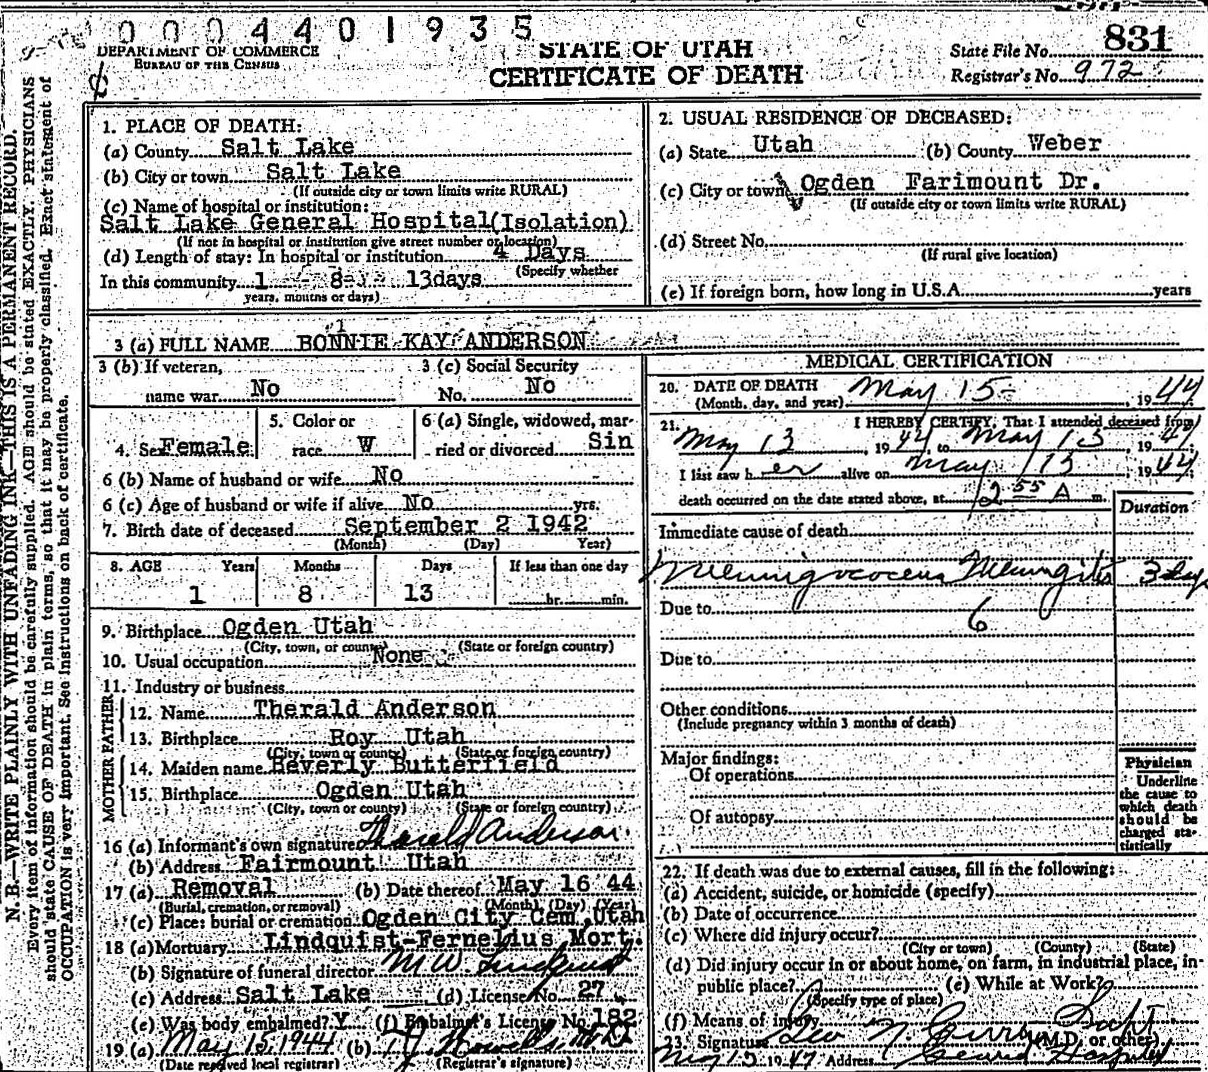 0004401935
DEPARTMENT OF COMMERCE
BUREAU OF THE CENSUS
STATE OF UTAH
CERTIFICATE OF DEATH
State File No. 831
Registrar's No. 972
N. B.—WRITE PLAINLY WITH UNFADING INK—THIS IS A PERMANENT RECORD.
Every item of information should be carefully supplied. AGE should be stated EXACTLY. PHYSICIANS
should state CAUSE OF DEATH in plain terms, so that it may be properly classified. Exact statement of
OCCUPATION is very important. See instructions on back of certificate.
1. PLACE OF DEATH:
(a) County Salt Lake
(b) City or town Salt Lake
(If outside city or town limits write RURAL)
(c) Name of hospital or institution:
Salt Lake General Hospital(Isolation)
(If not in hospital or institution give street number or location)
(d) Length of stay: In hospital or institution 4 Days
(Specify whether
In this community 1 - 8 - 13days
years, months or days)
2. USUAL RESIDENCE OF DECEASED:
(a) State Utah (b) County Weber
(c) City or town Ogden Farimount Dr.
(If outside city or town limits write RURAL)
(d) Street No.
(If rural give location)
(e) If foreign born, how long in U.S.A. years
3 (a) FULL NAME BONNIE KAY ANDERSON
3 (b) If veteran, name war No
3 (c) Social Security No. No
4. Sex Female
5. Color or race W
6 (a) Single, widowed, married or divorced Sin
6 (b) Name of husband or wife No
6 (c) Age of husband or wife if alive No yrs.
7. Birth date of deceased September 2 1942
(Month) (Day) Year)
8. AGE Years Months Days If less than one day
1 8 13 hr. min.
9. Birthplace Ogden Utah
(City, town, or county) (State or foreign country)
10. Usual occupation None
11. Industry or business
FATHER
12. Name Therald Anderson
13. Birthplace Roy Utah
(City, town or county) (State or foreign country)
MOTHER
14. Maiden name Beverly Butterfield
15. Birthplace Ogden Utah
(City, town or county) (State or foreign country)
16 (a) Informant's own signature Therald Anderson
(b) Address Fairmount Utah
17 (a) Removal (b) Date thereof May 16 44
(Burial, cremation, or removal) (Month) (Day) (Year)
(c) Place: burial or cremation Ogden City Cem. Utah
18 (a) Mortuary Lindquist-Fernelius Mort.
(b) Signature of funeral director M W Lindquist
(c) Address Salt Lake (d) License No. 27
(e) Was body embalmed? Y (f) Embalmer's License No. 182
19 (a) May 15, 1944 (b)
(Date received local registrar) (Registrar's signature)
MEDICAL CERTIFICATION
20. DATE OF DEATH May 15 1944
(Month, day, and year)
21. I HEREBY CERTIFY, That I attended deceased from
May 13, 1944, to May 15, 1944
I last saw her alive on May 13 1944
death occurred on the date stated above, at 12 55 A m.
Duration
Immediate cause of death
Meningococcus Meningitis 3 days
Due to 6
Due to
Other conditions
(Include pregnancy within 3 months of death)
Major findings:
Of operations
Of autopsy
Physician
Underline
the cause to
which death
should be
charged sta-
tistically
22. If death was due to external causes, fill in the following:
(a) Accident, suicide, or homicide (specify)
(b) Date of occurrence
(c) Where did injury occur?
(City or town) (County) (State)
(d) Did injury occur in or about home, on farm, in industrial place, in
public place? (e) While at Work?
(Specify type of place)
(f) Means of injury
23. Signature Leo N. Supt
(M.D. or other)
Address Hospital